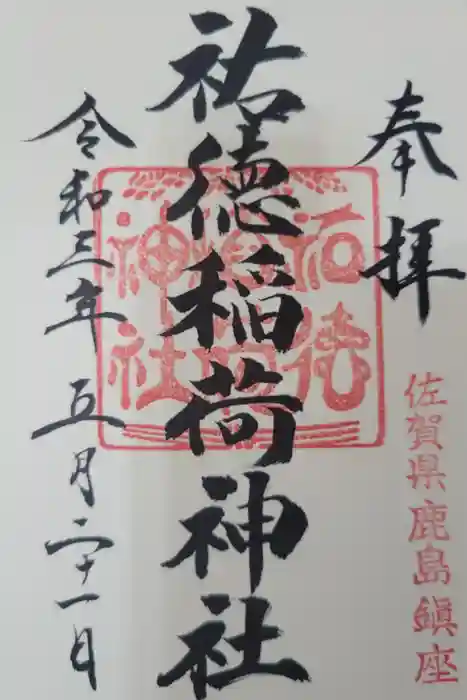 奉拝
佐賀県鹿島鎮座
祐徳稲荷神社
祐徳稲荷神社
令和三年五月二十一日